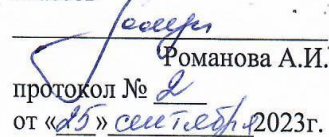 Романова А.И.
протокол № 2
от «25» сентября 2023г.